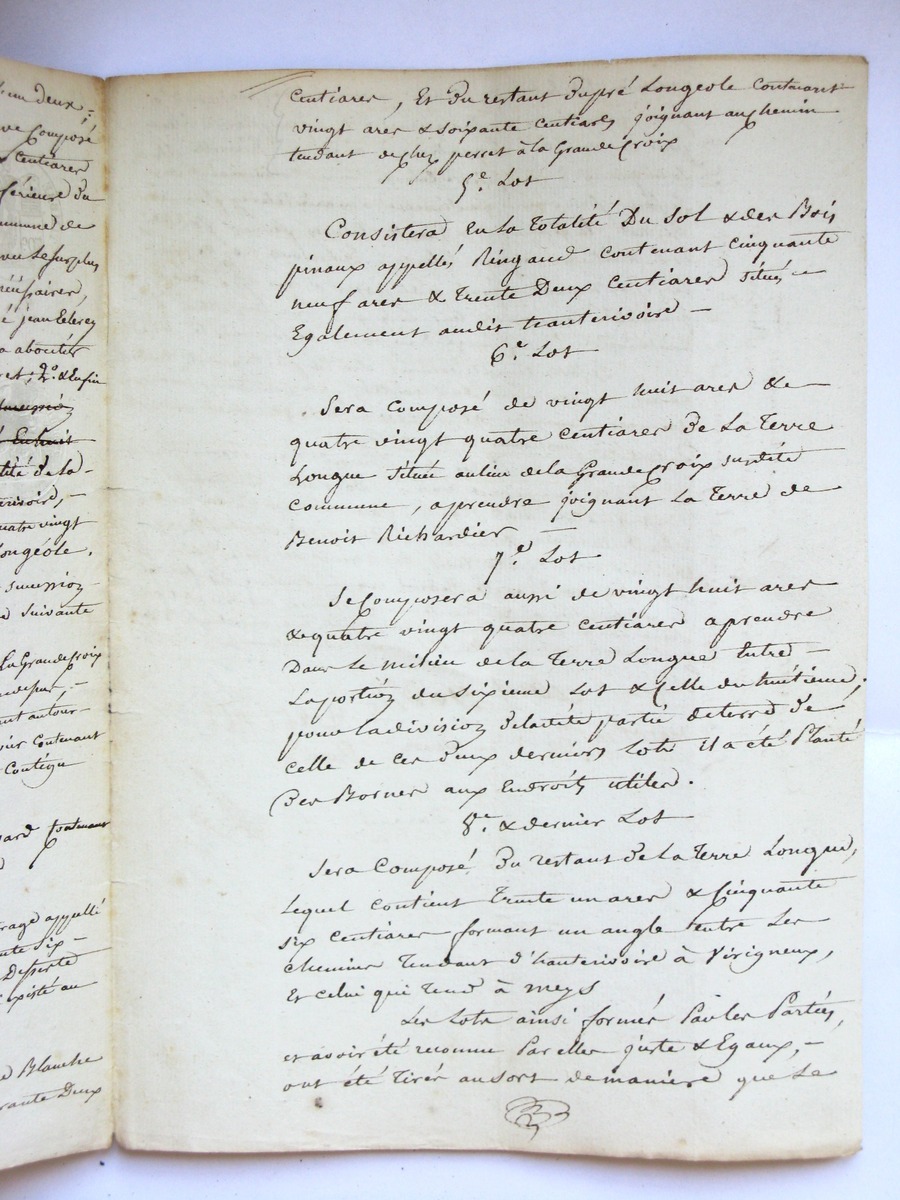 un deux
composé
centiares
férieure du
commune de
le surplus
jean Leclerc
aboutir
2º. & Enfin
en huit
de la
quatre vingt
Longéole.
suivante
La Grande Croix
autour
contenant
contenu
contenant
appellé
six
Blanche
Deux
centiares, Et du restant du pré Longeole contenant
vingt ares & soixante centiares joignant au chemin
tendant de chez perret à la Grande Croix
5e. Lot
Consistera En la totalité Du Sol & des Bois
pinaux appellés Ringaud contenant cinquante
neuf ares & trente Deux centiares situés
Egalement audit hauterivoire
6e. Lot
Sera composé de vingt huit ares &
quatre vingt quatre centiares de La Terre
Longue située au lieu de la Grande Croix susdite
commune, a prendre joignant La Terre de
Benoit Richardier
7e. Lot
Se Composera aussi de vingt huit ares
& quatre vingt quatre centiares a prendre
Dans Le milieu de la Terre Longue Entre
La portion du sixieme Lot & Celle du huitieme;
pour la division de la dite partie de terre de
celle de ces deux derniers Lots il a été Planté
Des Bornes aux Endroits utiles.
8e. & dernier Lot
Sera Composé Du restant de la Terre Longue,
Lequel contient Trente un ares & Cinquante
six centiares formant un angle entre Les
chemins Tendant d'hauterivoire à Virigneux,
Et celui qui Tend à meys
Les Lots ainsi formés Par les Parties,
et avoir été reconnu Par elles juste & Egaux,
ont été Tirés au sort de maniere que Le